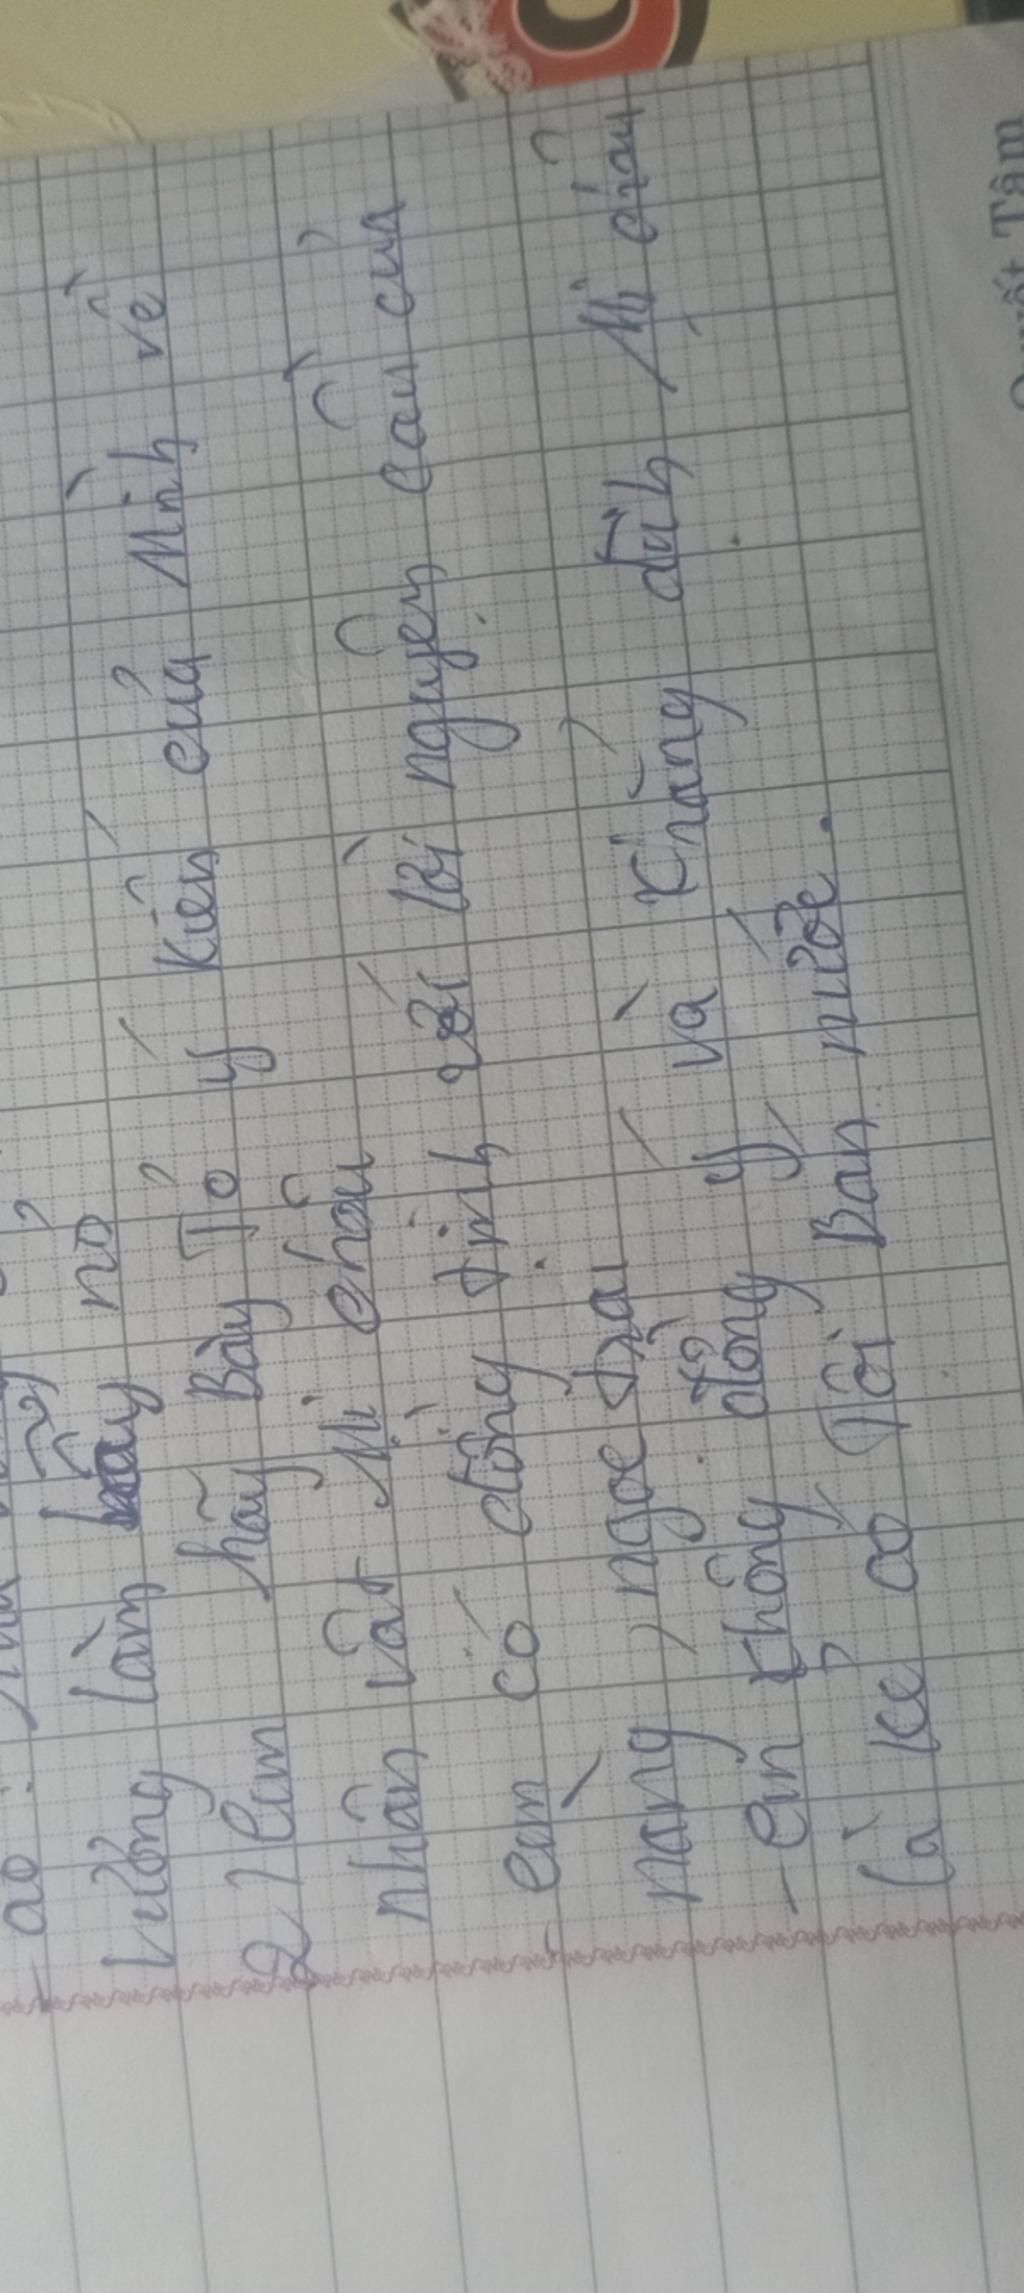 Vưởng làm bẫy nỏ
2, Em hãy Bày Tỏ ý kiến của Mình về
nhân vật Mị châu
- em có đồng định với lời nguyện cầu của
nàng, ngọc trai
- em không đồng ý và khẳng định, Mị châu
là kẻ có Tội Bán nước.
Quyết Tâm